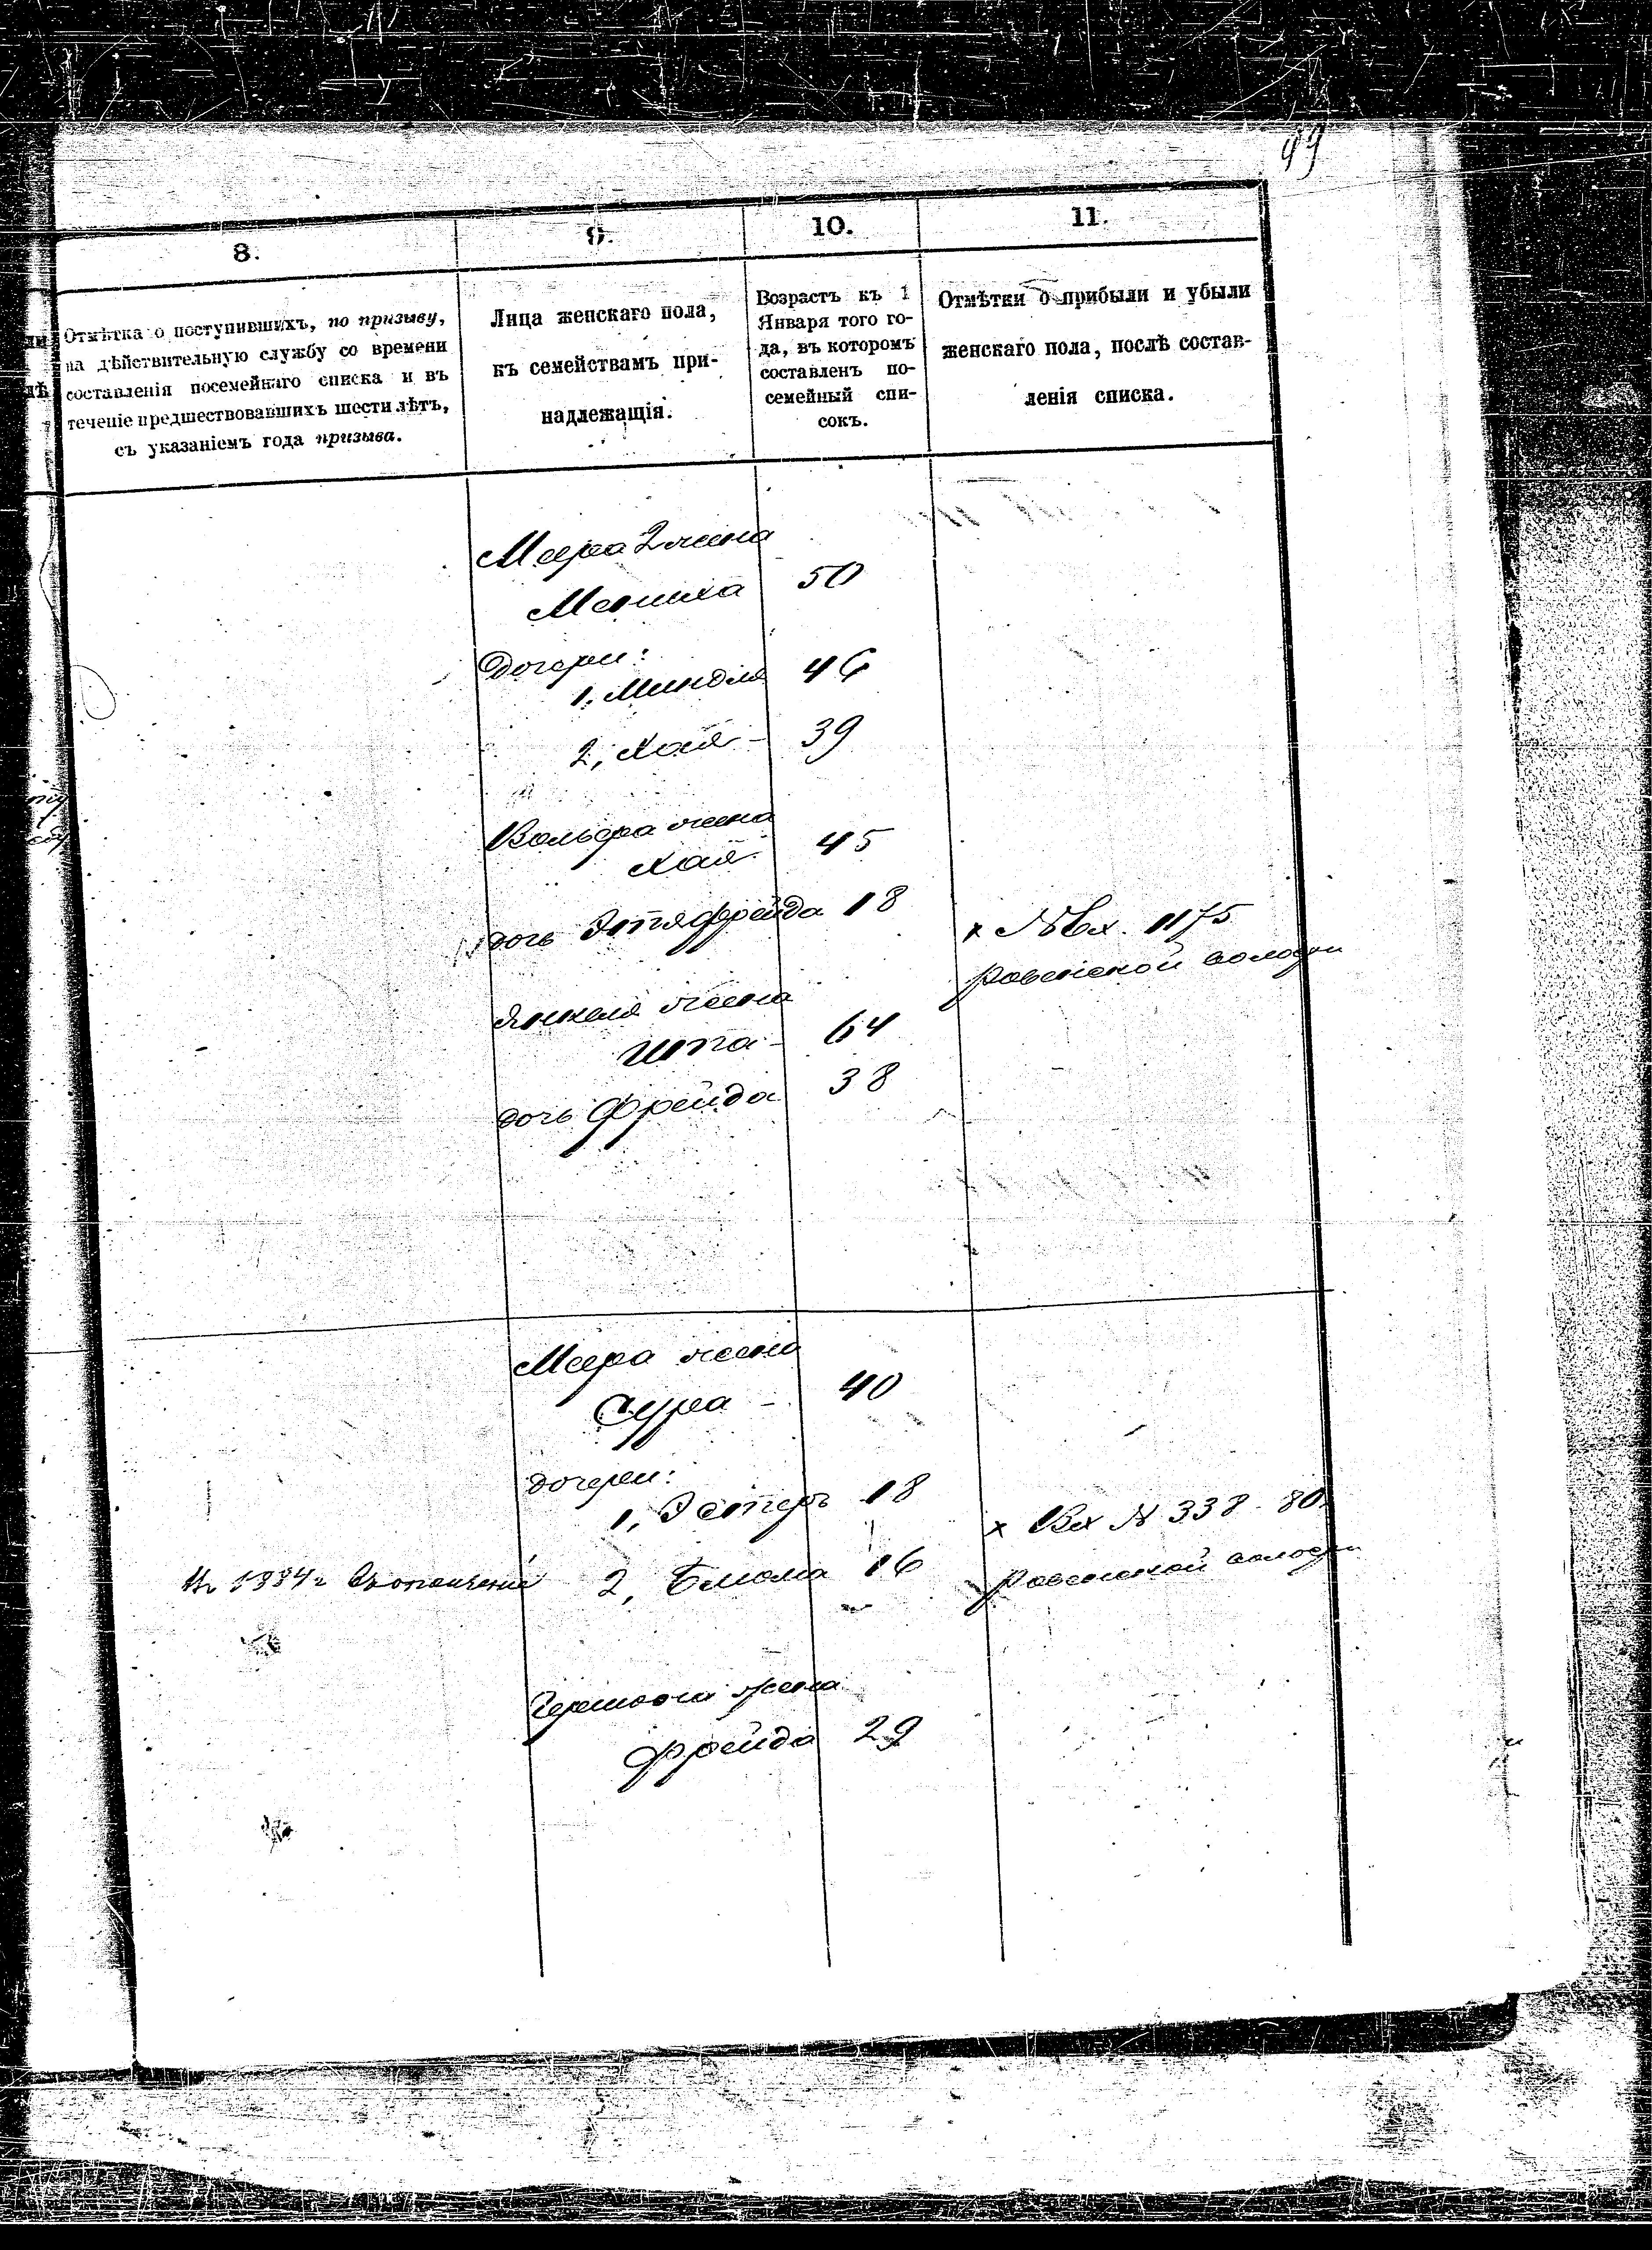 99
8.
9.
10.
11.
Отмѣтка о поступившихъ, по призыву,
на дѣйствительную службу со времени
составленія посемейнаго списка и въ
теченіе предшествовавшихъ шести лѣтъ,
съ указаніемъ года призыва.
Лица женскаго пола,
къ семействамъ при-
надлежащія.
Возрастъ къ 1
Января того го-
да, въ которомъ
составленъ по-
семейный спи-
сокъ.
Отмѣтки о прибыли и убыли
женскаго пола, послѣ состав-
ленія списка.
Меера 2 жена
50
дочери:
1, Миндля 46
2, Хая - 39
Вольфа жена
Хая 45
дочь Этя Фрейда 18
х № Вх. 1175
Янкеля жена
64
дочь Фрейда 38
Меера жена
Сура - 40
дочери:
1, Эстеръ 18
х Вх № 338 - 80
1884 г
2, Блюма 16
жена
Фрейда 29